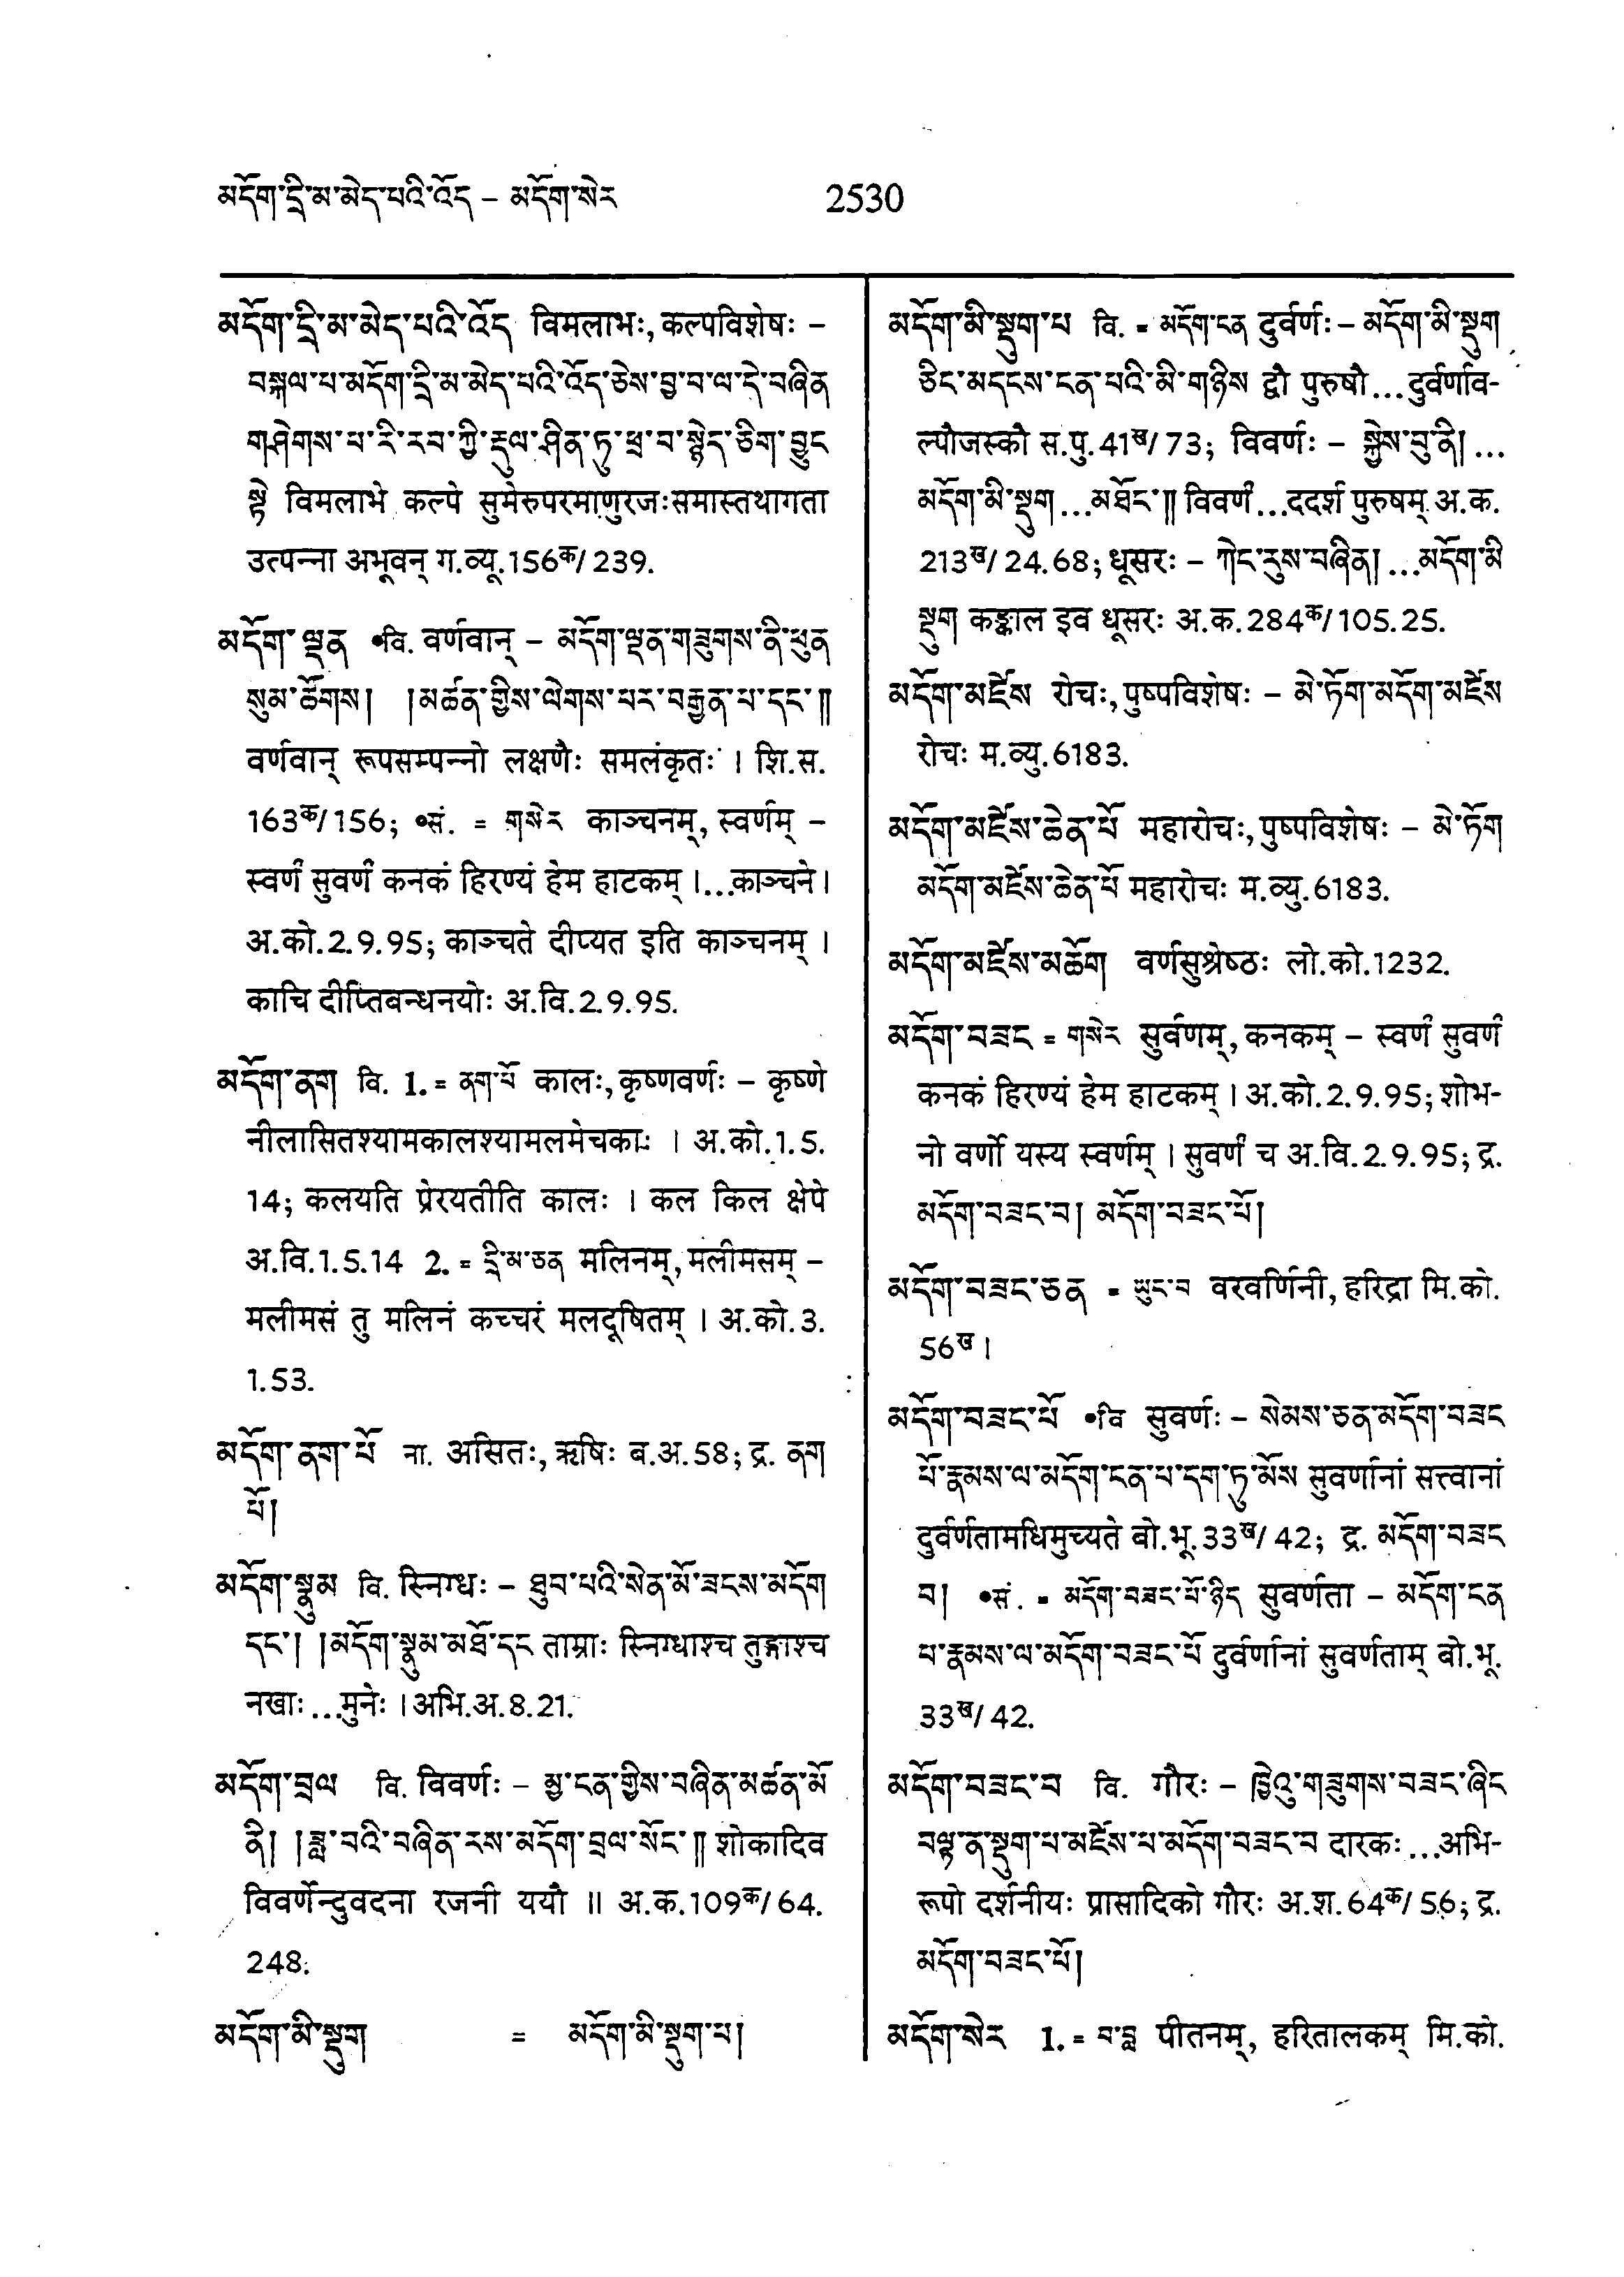 མདོག་དྲི་མ་མེད་པའི་འོད – མདོག་སེར
2530
མདོག་དྲི་མ་མེད་པའི་འོད विमलाभः, कल्पविशेषः –
བསྐལ་པ་མདོག་དྲི་མ་མེད་པའི་འོད་ཅེས་བྱ་བ་ལ་དེ་བཞིན
གཤེགས་པ་རི་རབ་ཀྱི་རྡུལ་ཤིན་ཏུ་ཕྲ་བ་སྙེད་ཅིག་བྱུང
སྟེ विमलाभे कल्पे सुमेरुपरमाणुरजःसमास्तथागता
उत्पन्ना अभूवन् ग.व्यू.156क/239.
མདོག་ལྡན •वि. वर्णवान् – མདོག་ལྡན་གཟུགས་ནི་ཕུན
སུམ་ཚོགས། །མཚན་གྱིས་ལེགས་པར་བརྒྱན་པ་དང་༎
वर्णवान् रूपसम्पन्नो लक्षणैः समलंकृतः । शि.स.
163क/156; •सं. = གསེར काञ्चनम्, स्वर्णम् –
स्वर्णं सुवर्णं कनकं हिरण्यं हेम हाटकम् ।...काञ्चने।
अ.को.2.9.95; काञ्चते दीप्यत इति काञ्चनम् ।
काचि दीप्तिबन्धनयोः अ.वि.2.9.95.
མདོག་ནག वि. 1. = ནག་པོ कालः, कृष्णवर्णः – कृष्णे
नीलासितश्यामकालश्यामलमेचकाः । अ.को.1.5.
14; कलयति प्रेरयतीति कालः । कल किल क्षेपे
अ.वि.1.5.14 2. = དྲི་མ་ཅན मलिनम्, मलीमसम् –
मलीमसं तु मलिनं कच्चरं मलदूषितम् । अ.को.3.
1.53.
མདོག་ནག་པོ ना. असितः, ऋषिः ब.अ.58; द्र. ནག
པོ།
མདོག་སྣུམ वि. स्निग्धः – ཐུབ་པའི་སེན་མོ་ཟངས་མདོག
དང་། །མདོག་སྣུམ་མཐོ་དང ताम्राः स्निग्धाश्च तुङ्गाश्च
नखाः...मुनेः । अभि.अ.8.21.
མདོག་བྲལ वि. विवर्णः – མྱ་ངན་གྱིས་བཞིན་མཚན་མོ
ནི། །ཟླ་བའི་བཞིན་རས་མདོག་བྲལ་སོང་༎ शोकादिव
विवर्णेन्दुवदना रजनी ययौ ॥ अ.क.109क/64.
248.
མདོག་མི་སྡུག = མདོག་མི་སྡུག་པ།
མདོག་མི་སྡུག་པ वि. = མདོག་ངན दुर्वर्णः – མདོག་མི་སྡུག
ཅིང་མདངས་ངན་པའི་མི་གཉིས द्वौ पुरुषौ...दुर्वर्णाव-
ल्पौजस्कौ स.पु.41ख/73; विवर्णः – སྐྱེས་བུ་ནི།...
མདོག་མི་སྡུག...མཐོང་༎ विवर्णं...ददर्श पुरुषम् अ.क.
213ख/24.68; धूसरः – ཀེང་རུས་བཞིན།...མདོག་མི
སྡུག कङ्काल इव धूसरः अ.क.284क/105.25.
མདོག་མཛེས रोचः, पुष्पविशेषः – མེ་ཏོག་མདོག་མཛེས
रोचः म.व्यु.6183.
མདོག་མཛེས་ཆེན་པོ महारोचः, पुष्पविशेषः – མེ་ཏོག
མདོག་མཛེས་ཆེན་པོ महारोचः म.व्यु.6183.
མདོག་མཛེས་མཆོག वर्णसुश्रेष्ठः लो.को.1232.
མདོག་བཟང = གསེར सुर्वणम्, कनकम् – स्वर्णं सुवर्णं
कनकं हिरण्यं हेम हाटकम् । अ.को.2.9.95; शोभ-
नो वर्णो यस्य स्वर्णम् । सुवर्णं च अ.वि.2.9.95; द्र.
མདོག་བཟང་བ། མདོག་བཟང་པོ།
མདོག་བཟང་ཅན = ཡུང་བ वरवर्णिनी, हरिद्रा मि.को.
56ख।
མདོག་བཟང་པོ •वि सुवर्णः – སེམས་ཅན་མདོག་བཟང
པོ་རྣམས་ལ་མདོག་ངན་པ་དག་ཏུ་མོས सुवर्णानां सत्त्वानां
दुर्वर्णतामधिमुच्यते बो.भू.33ख/42; द्र. མདོག་བཟང
བ། •सं. = མདོག་བཟང་པོ་ཉིད सुवर्णता – མདོག་ངན
པ་རྣམས་ལ་མདོག་བཟང་པོ दुर्वर्णानां सुवर्णताम् बो.भू.
33ख/42.
མདོག་བཟང་བ वि. गौरः – ཁྱེའུ་གཟུགས་བཟང་ཞིང
བལྟ་ན་སྡུག་པ་མཛེས་པ་མདོག་བཟང་བ दारकः...अभि-
रूपो दर्शनीयः प्रासादिको गौरः अ.श.64क/56; द्र.
མདོག་བཟང་པོ།
མདོག་སེར 1. = བ་བླ पीतनम्, हरितालकम् मि.को.